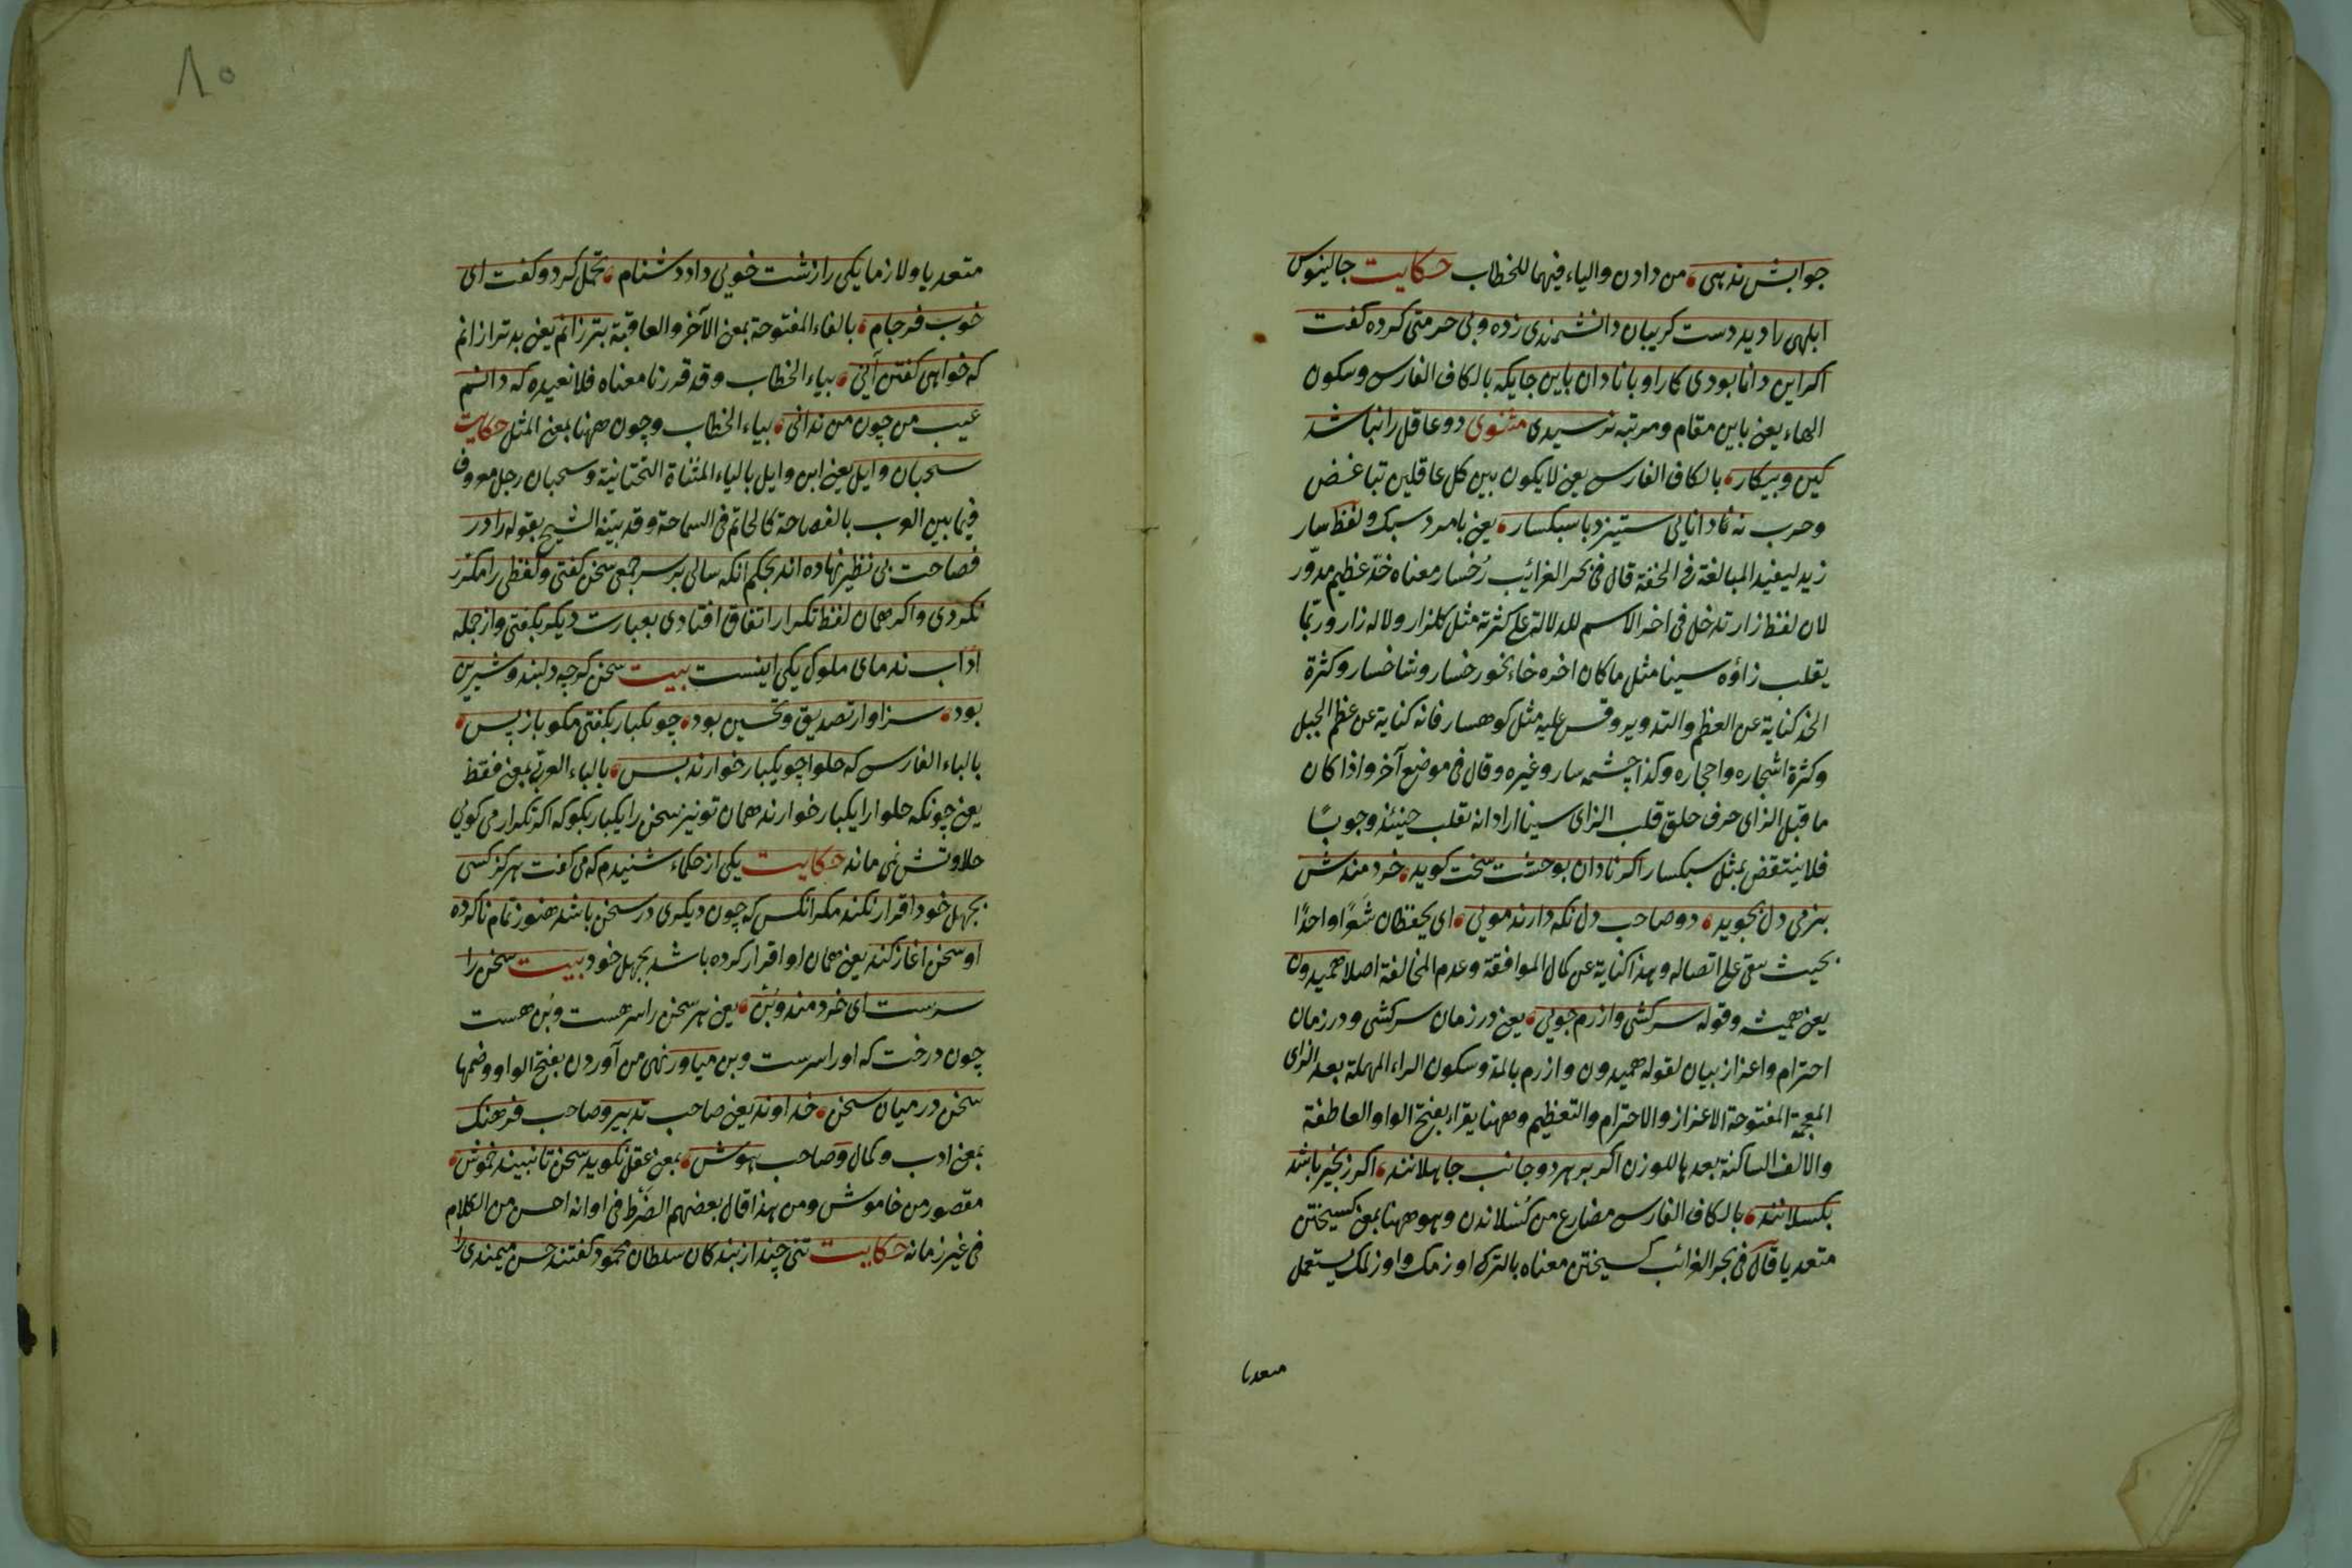 جوابش ندهی من دادن والیاء فیهما للخطاب حکایت جالینوس
ابلهی را دید دست کریبان دانشمندی زده وبی حرمتی کرده کفت
اکر این دانا بودی کار او با نادان باین جایکه بالکاف الفارسی وسکون
الهاء یعنی باین مقام ومرتبه نرسیدی مثنوی دو عاقل را نباشد
کین وپیکار بالکاف الفارسی یعنی لا یکون بین کل عاقلین تباغض
وحرب نه دانایی ستیزد با سبکسار یعنی با مرد سبک ولفظ سار
زید لیفید المبالغة فی الخفة قال فی بحر الغرائب رُخسار معناه خدّ عظیم مدوّر
لان لفظ زار تدخل فی اخر الاسم للدلالة علی کثرته مثل کلزار ولاله زار وربّما
یقلب زاؤه سینا مثل ما کان اخره خاء نحو رخسار وشاخسار وکثرة
الخد کنایة عن العظم والتدویر وقس علیه مثل کوهسار فانه کنایة عن عظم الجبل
وکثرة اشجاره واحجاره وکذا چشمه سار وغیره وقال فی موضع آخر واذا کان
ما قبل الزای حرف حلق قلب الزای سینا اراد انه تقلب حینئذ وجوبًا
فلا ینتقض بمثل سبکسار اکر نادان بوحشت سخت کوید خردمندش
بنرمی دل بجوید دو صاحب دل نکه دارند مویی ای یحفظان شَعرًا واحدًا
بحیث یبقی علی اتصاله وهذا کنایة عن کمال الموافقة وعدم المخالفة اصلا همیدون
یعنی همیشه وقوله سرکشی وازرم جویی یعنی در زمان سرکشی ودر زمان
احترام واعزاز بیان لقوله همیدون وازرم بالمد وسکون الراء المهملة بعد الزای
المعجمة المفتوحة الاعزاز والاحترام والتعظیم وههنا یقراء بفتح الواو العاطفة
والالف الساکنة بعدها للوزن اکر بر هر دو جانب جاهلانند اکر زنجیر باشد
بکسلانند بالکاف الفارسی مضارع من کسلاندن وهو ههنا بمعنی کسیختن
متعدیا قال فی بحر الغرائب کسیختن معناه بالترکی اوزمک واوزلمک یستعمل
متعدیا
٨٠
متعدیا ولازما یکی را زشت خویی داد دشنام تحمل کرد وکفت ای
خوب فرجام بالفاء المفتوحة بمعنی الآخر والعاقبة بتر زانم یعنی بدتر از انم
که خواهی کفتن آنی بیاء الخطاب وقد قررنا معناه فلا نعیده که دانم
عیب من چون من ندانی بیاء الخطاب وچون ههنا بمعنی المثل حکایت
سحبان وایل یعنی ابن وایل بالیاء المثناة التحتانیة وسحبان رجل معروف
فیما بین العرب بالفصاحة کالحاتم فی السماحة وقد بیّنه الشیخ بقوله را در
فصاحت بی نظیر نهاده اند بحکم انکه سالی بر سر جمعی سخن کفتی ولفظی را مکرّر
نکردی واکر همان لفظ تکرار اتفاق افتادی بعبارت دیکر بکفتی واز جمله
اداب ندمای ملوک یکی اینست بیت سخن کرچه دلبند وشیرین
بود سزاوار تصدیق وتحسین بود چو یکبار بکفتی مکو باز پس
بالباء الفارسی که حلوا چو یکبار خوارند بس بالباء العربی بمعنی فقط
یعنی چونکه حلوا را یکبار خوارند همان تو نیز سخن را یکبار بکو که اکر تکرار می کویی
حلاوتش نمی ماند حکایت یکی از حکماء شنیدم که می کفت هرکز کسی
بجهل خود اقرار نکند مکر انکس که چون دیکری در سخن باشد هنوز تمام ناکرده
او سخن اغاز کند یعنی همان او اقرار کرده باشد بجهل خود بیت سخن را
سرست ای خردمند وبُن یعنی هر سخن را سر هست وبُن هست
چون درخت که او را سرست وبن میاور نهی من آوردن بفتح الواو وضمها
سخن در میان سخن خداوند یعنی صاحب تدبیر وصاحب فرهنک
بمعنی ادب وکمال وصاحب هوش بمعنی عقل نکوید سخن تا نبیند خموش
مقصور من خاموش ومن هذا قال بعضهم الضَرْط فی اوانه احسن من الکلام
فی غیر زمانه حکایت تنی چند از بندکان سلطان محمود کفتند حسن میمندی را